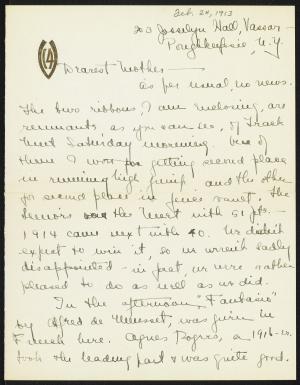 Feb. 24, 1913
203 Josselyn Hall, Vassar -
Poughkeepsie, N.Y.
Dearest Mother -
As per usual, no news.
The two ribbons, I am inclosing, are
remnants as you can see, of Track
Meet Saturday morning. One of
them I won for getting second place
in running high jump, and the other
for second place in fence vault. The
Seniors won the Meet with 51 pts. -
1914 came next with 40. We didn't
expect to win it, so we weren't sadly
disappointed - in fact, we were rather
pleased to do as well as we did.
In the afternoon, "Fantasio"
by Alfred de Musset, was given in
French here. Agnes Rogers, a 1916-er,
took the leading part & was quite good.